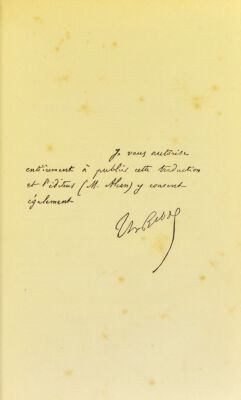 Je vous autorise
entièrement à publier cette traduction
et l'éditeur (M. Alcan) y consent
également
Th Ribot